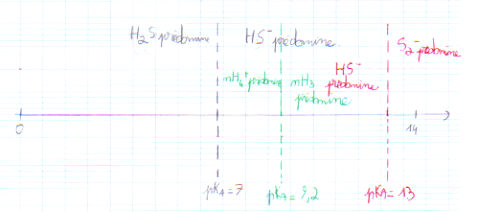 H₂S prédomine
HS⁻ prédomine.
S₂⁻ prédomine
nH₄⁺ prédomine
nH₃
prédomine
HS⁻
prédomine
0
14
pKA = 7
pKA = 9,2
pKA = 13